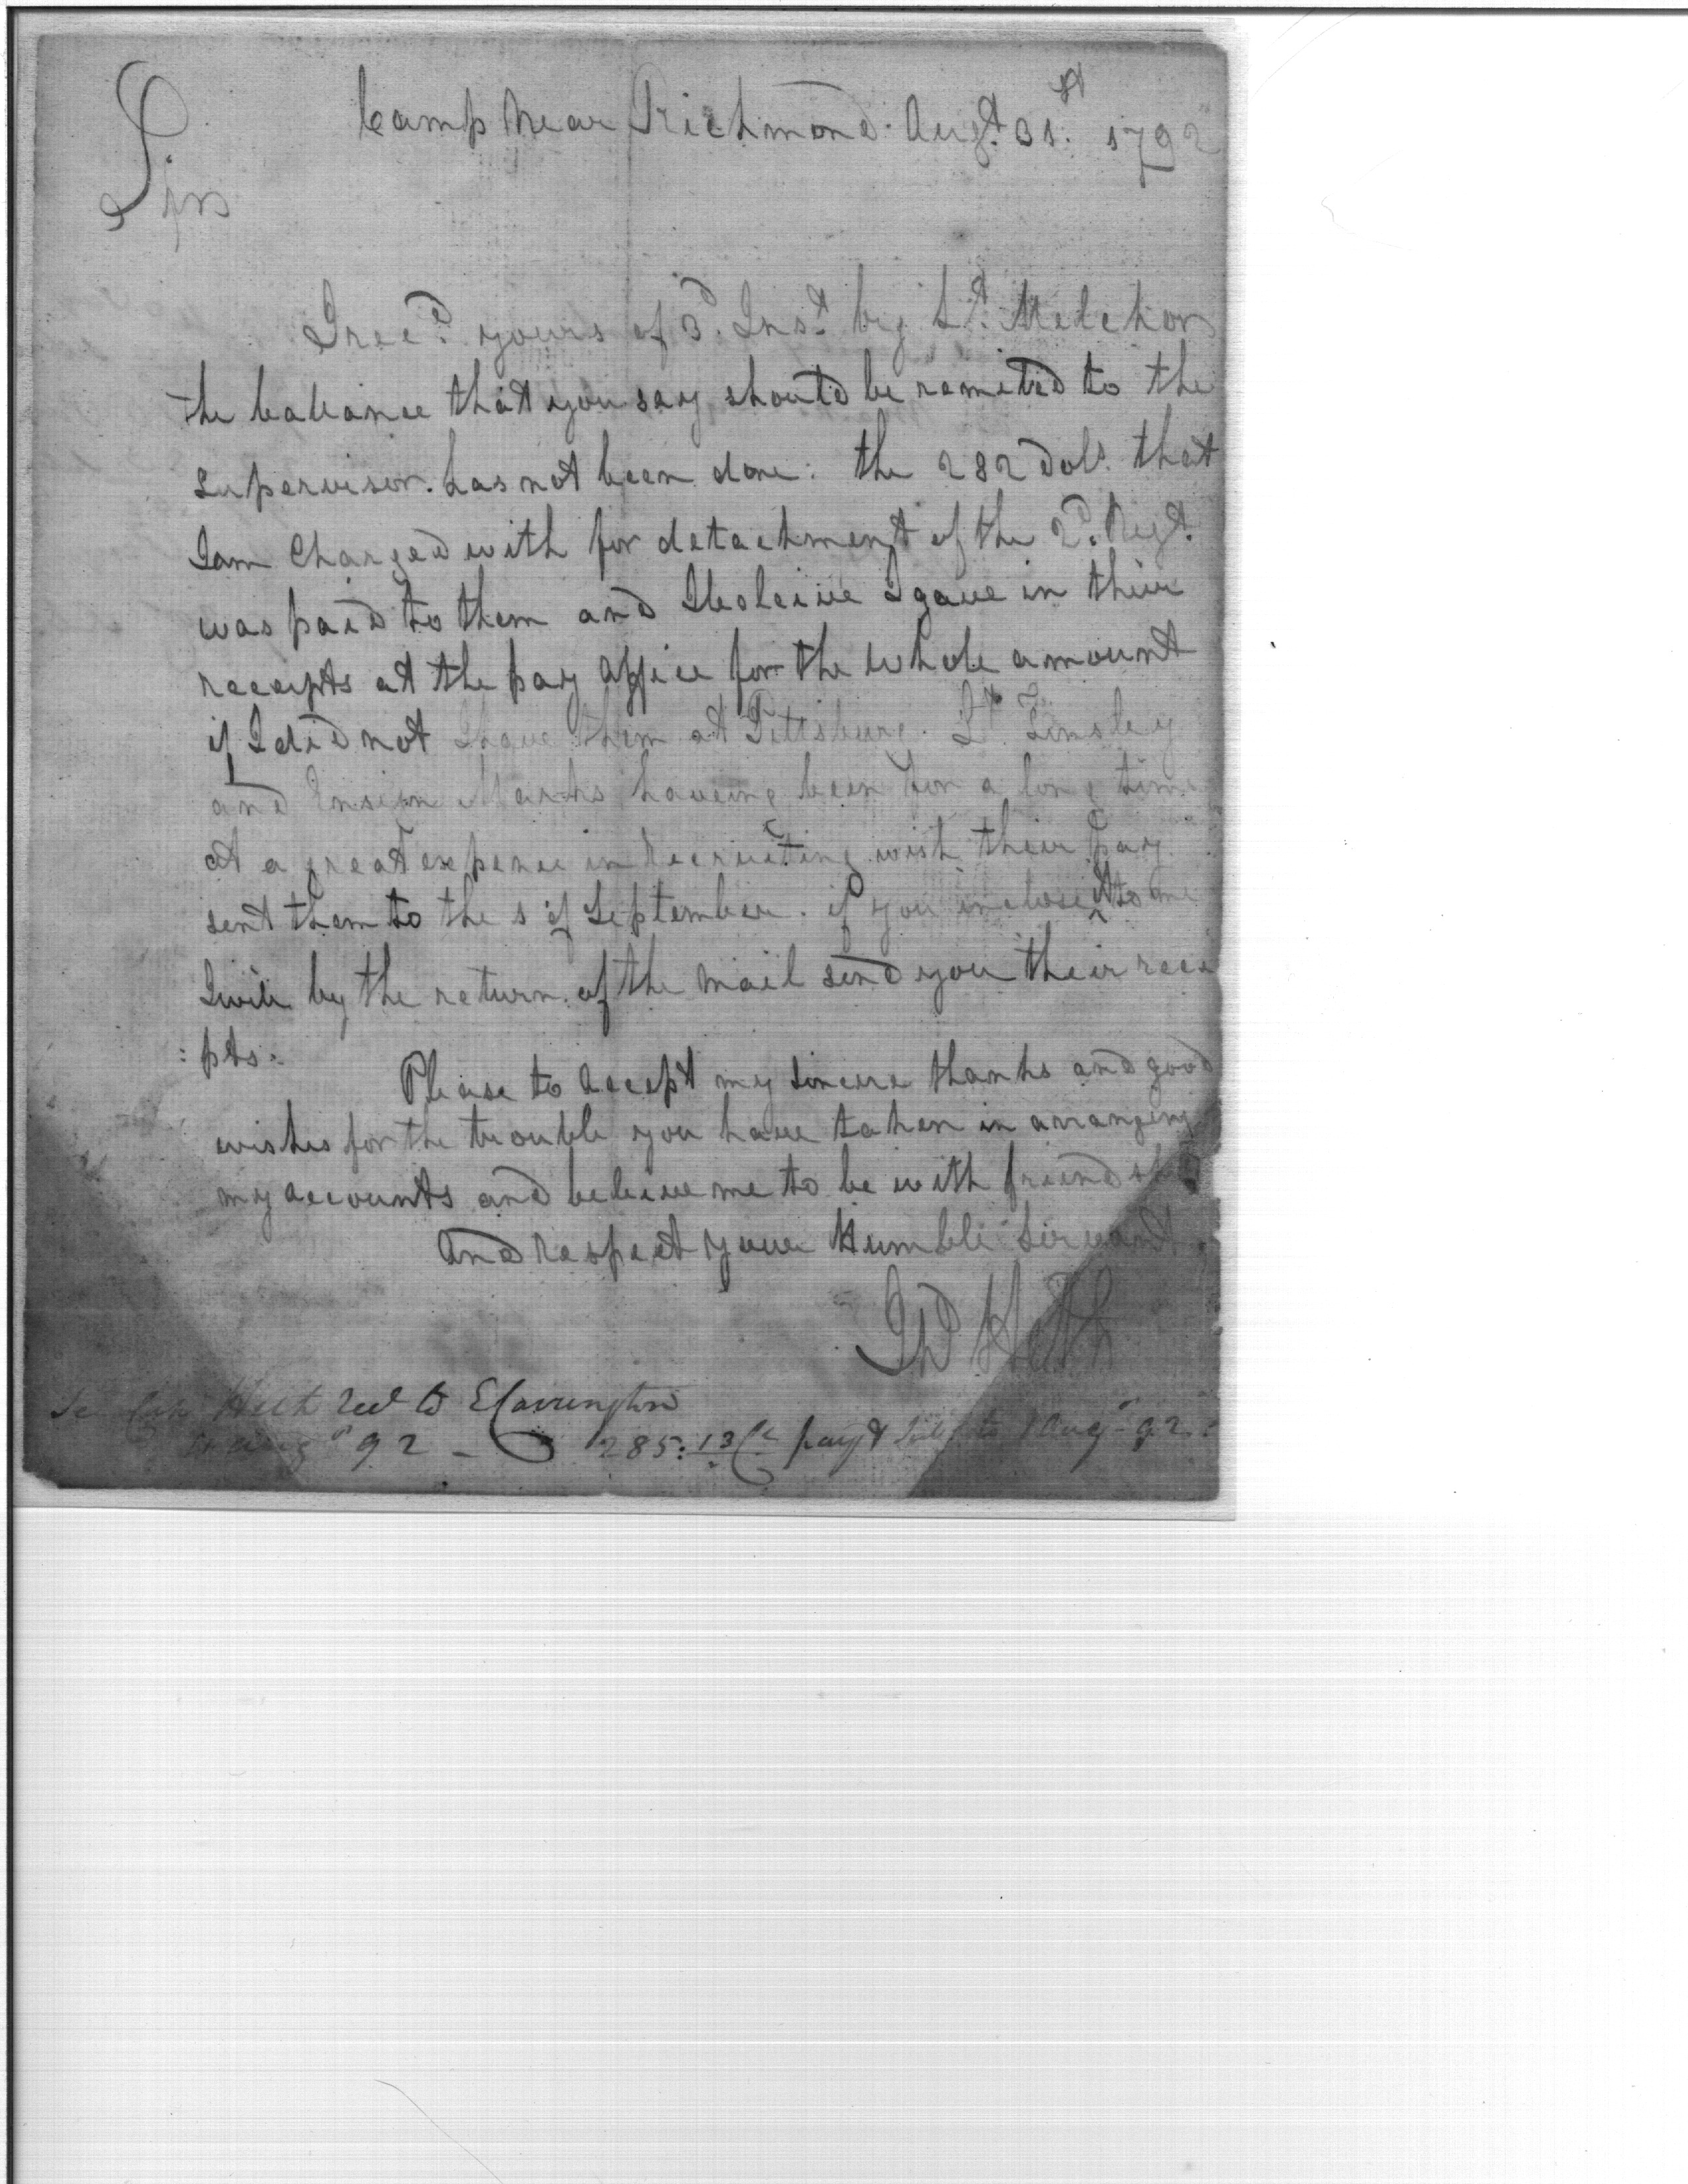 Camp Near Richmond. Augt. 31st. 1792
Sir
I recd. yours of 3d. Inst. by Lt. Melchor
the ballance that you say should be remited to the
supervisor. has not been done: the 282 Dols. that
I am Charged with for detachment of the 2d. Regt.
was paid to them and I beleive I gave in thier
receipts at the pay office for the whole amount
if I did not I have them at Pittsburg. Lt. Tinsley
and Ensign Marks haveing been for a long time
at a great expence in Recruiting wish their pay
sent them to the 1 of September. if you inclose it to me
I will by the return of the Mail send you their recei
: pts.
Please to accept my sincere thanks and good
wishes for the trouble you have taken in arranging
my accounts and beleive me to be with friendship
And respect your Humble Servant
Jno Heth
Heth to E Carrington
Augt 92 - 285:13 pay & to 1 Augt 92